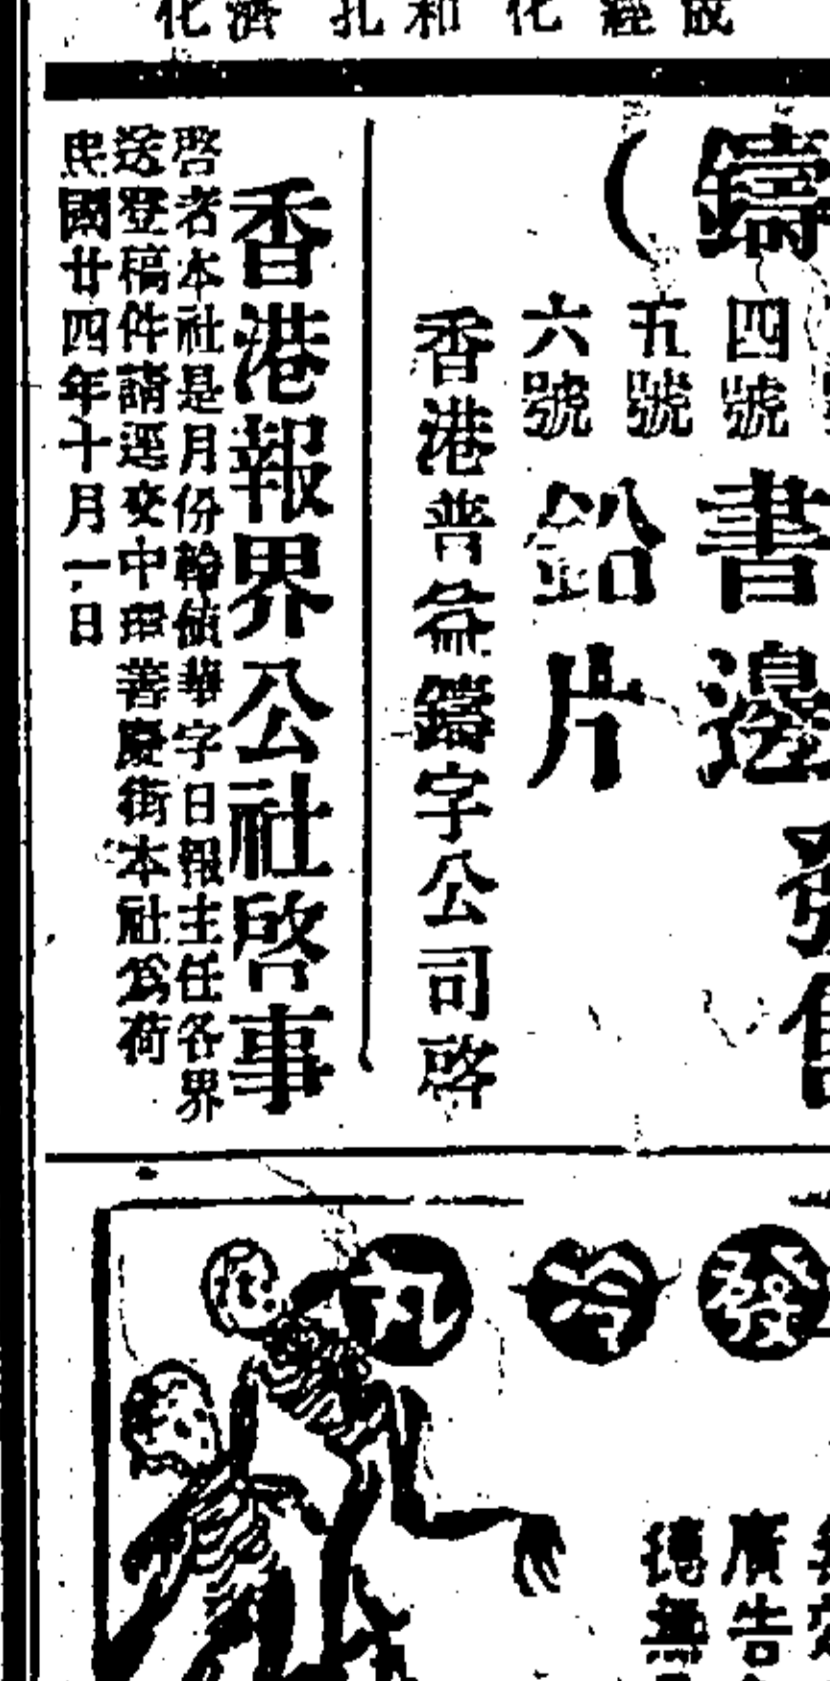 鑄
四號
五號
六號
書邊
鉛片
發售
香港普益鑄字公司啓
香港報界公社啓事
啓者本社是月份輪値華字日報主任各界
送登稿件請逕交中環善慶街本社爲荷
民國廿四年十月一日
發冷丸
廣告